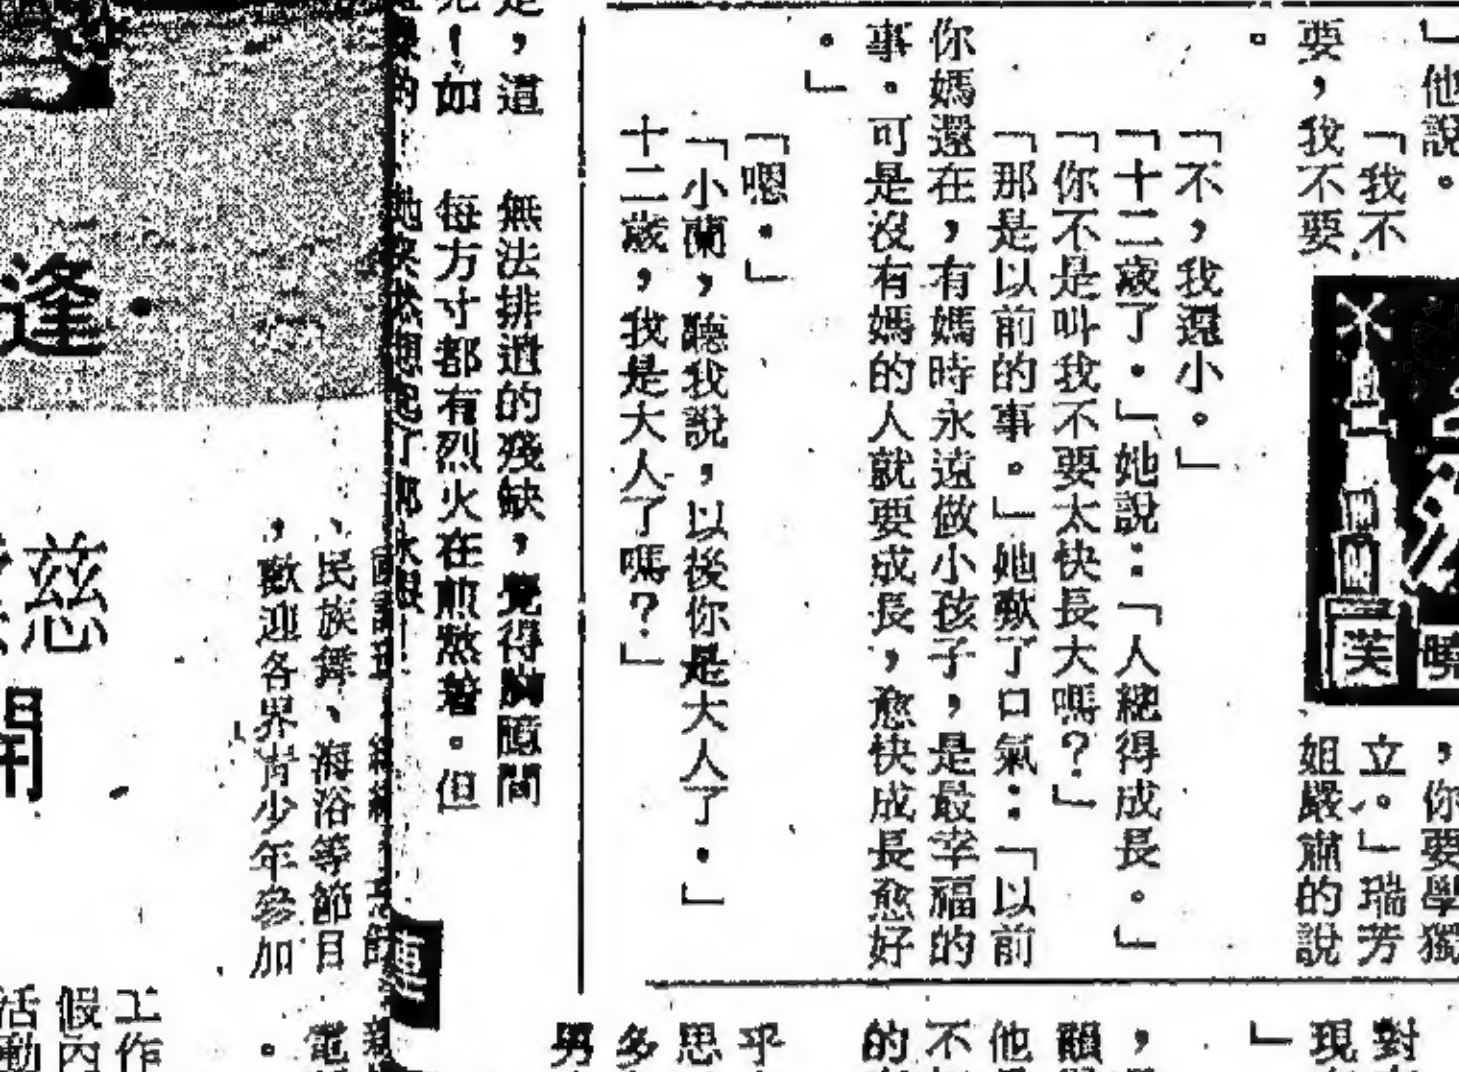 」他說。
「我不
要，我不要
。
，你要學獨
立。」瑞芳
姐嚴肅的說
曉
芙
「不，我還小。」
「十二歲了。」她說：「人總得成長。」
「你不是叫我不要太快長大嗎？」
「那是以前的事。」她歎了口氣：「以前
你媽還在，有媽時永遠做小孩子，是最幸福的
事。可是沒有媽的人就要成長，愈快成長愈好
。」
「嗯。」
「小蘭，聽我說，以後你是大人了。」
十二歲，我是大人了嗎？」
對
現
」
，
韻
他
不
的
乎
思
多
男
是，這
無法排遣的殘缺，覺得胸臆間
！如
每方寸都有烈火在煎熬着。但
她突然想起了那永恨
逢·
、民族舞、海浴等節目
，歡迎各界青少年參加
。
慈
開
工作
假內
活動